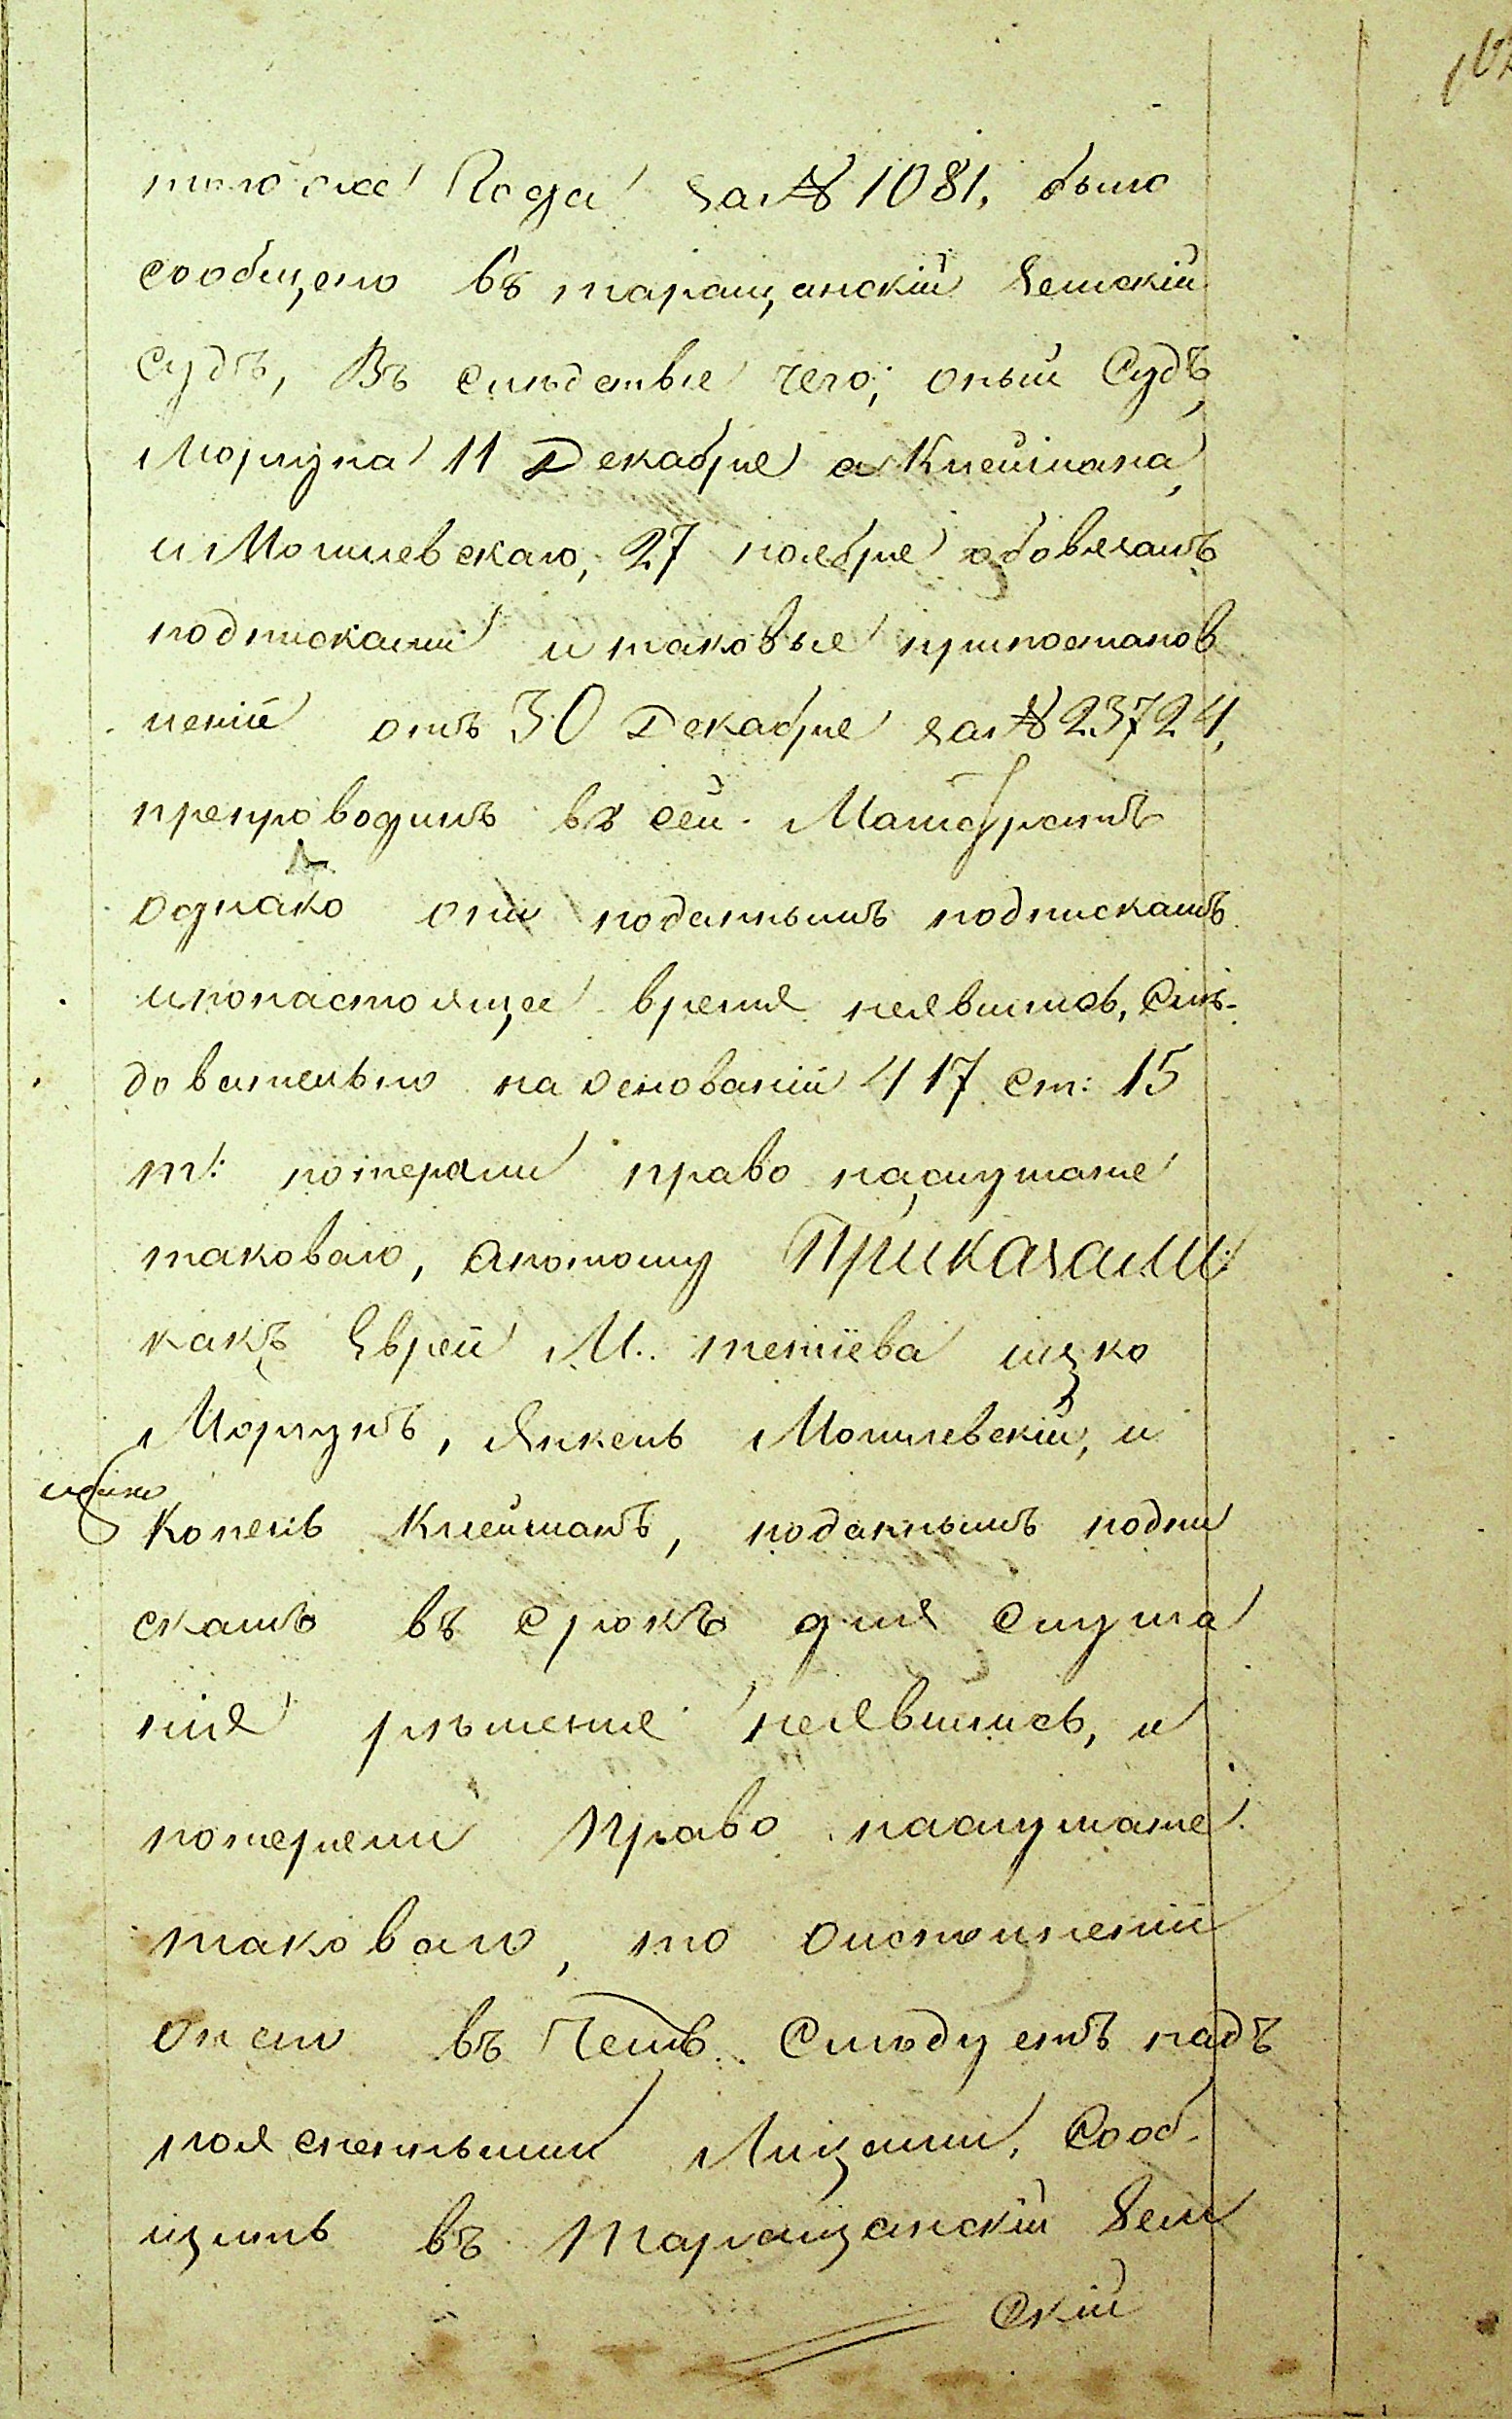 того же Года за № 1081, было
сообщено въ таращанскій Земскій
Судъ, Въ следствіе чего, оный Судъ,
Моргуна 11 Декабря а Клеймана,
и Могилевскаго, 27 ноября обовязавъ
подписками и таковые припостанов
леніи отъ 30 Декабря за № 23724,
препроводилъ въ сей Магистратъ
однако они поданнымъ подпискамъ
ипонастоящее время неявились, Слѣ-
довательно на основаніи 417 ст: 15
т: потеряли право наслушаніе
таковаго, апотому Приказали:
какъ Евреи М. тетіева ицко
Моргунъ, Янкель Могилевскій, и
Копель Клейманъ, поданнымъ подпи
скамъ въ срокъ для слуша
нія рѣшенія неявились, и
потеряли право наслушаніе
таковаго, то
онаго въ Чемъ Слѣдуетъ надъ
поясненными Лицами, Сооб-
щить въ Таращанскій Зем
скій